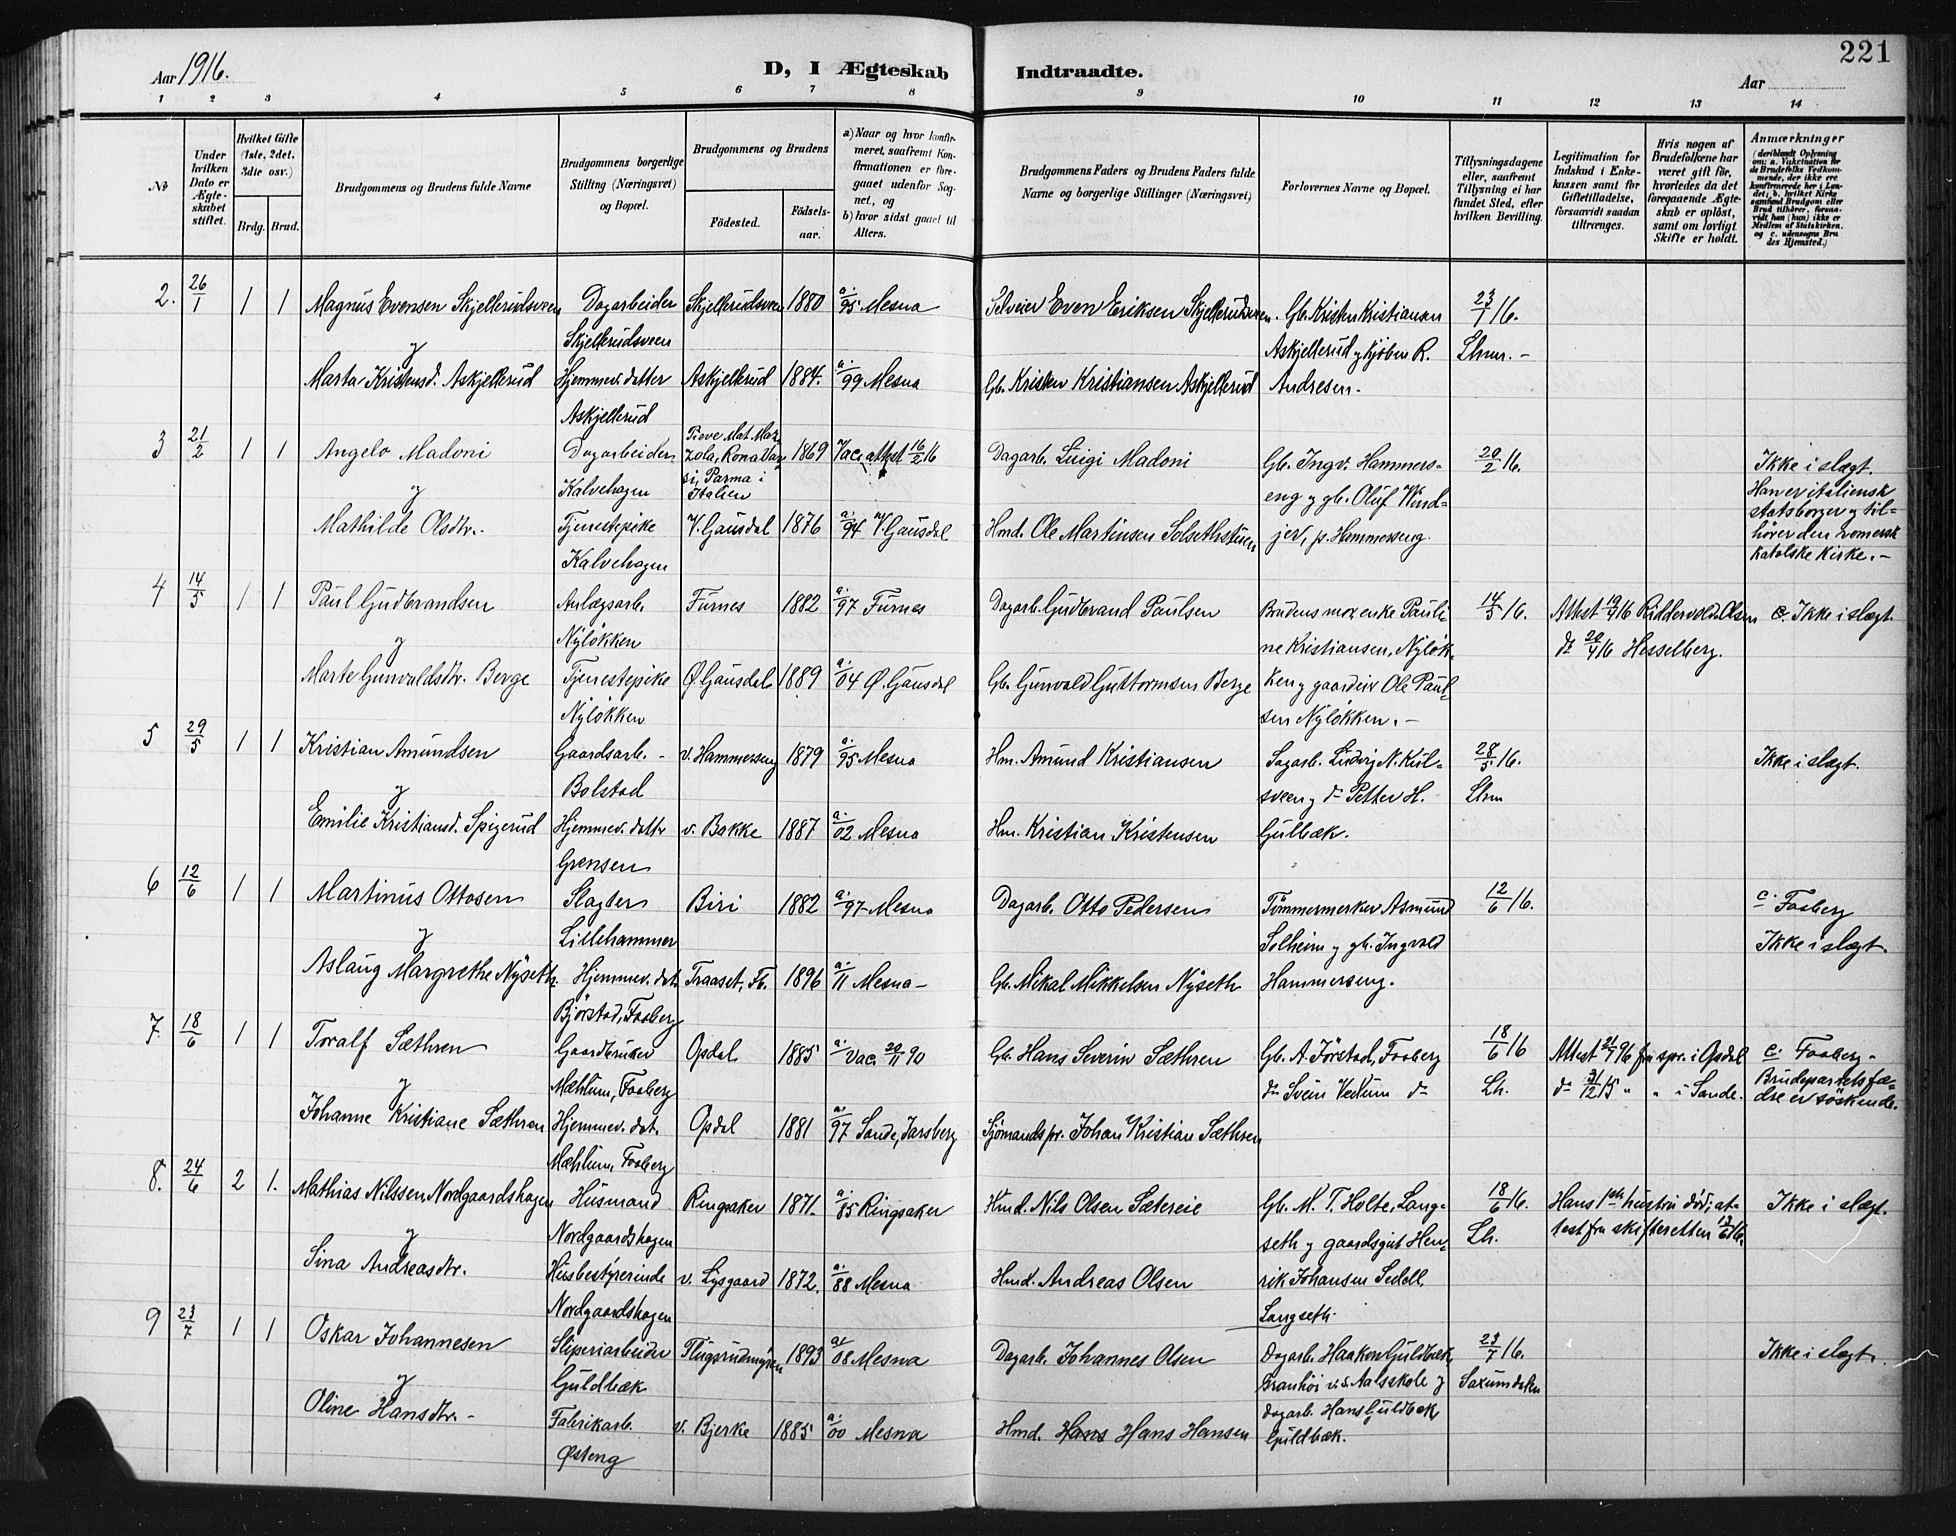 221
Aar 1916.
D, I Ægteskab Indtraadte.
Aar
1 2 3 4 5 6 7 8 9 10 11 12 13 14
No
Under hvilken Dato er Ægteskabet stiftet.
Hvilket Gifte (1ste, 2det, 3die osv.)
Brdg. Brud.
Brudgommens og Brudens fulde Navne
Brudgommens borgerlige Stilling (Næringsvei) og Bopæl.
Brudgommens og Brudens
Fødested.
Fødselsaar.
a) Naar og hvor konfirmeret, saafremt Konfirmationen er foregaaet udenfor Sognet, og
b) hvor sidst gaaet til Alters.
Brudgommens Faders og Brudens Faders fulde Navne og borgerlige Stillinger (Næringsvei)
Forlovernes Navne og Bopæl.
Tillysningsdagene eller, saafremt Tillysning ei har fundet Sted, efter hvilken Bevilling.
Legitimation for Indskud i Enkekassen samt for Giftetilladelse, forsaavidt saadan tiltrænges.
Hvis nogen af Brudefolkene har været gift før, hvorledes da det foregaaende Ægteskab er opløst, samt om lovligt Skifte er holdt.
Anmærkninger
(deriblandt Oplysning om: a. Vakcination for de Brudefolks Vedkommende, der ikke ere konfirmerede her i Landet; b. hvilket Kirkesamfund Brudgom eller Brud tilhører, forsaavidt han (hun) ikke er Medlem af Statskirken. og c. udensogns Brudes Hjemsted.)
2. 26/1 1 1 Magnus Evensen Skjellerudsveen Dagarbeider Skjellerudsveen 1880 a. 95 Mesna Selveier Even Eriksen Skjellerudsveen. Gb. Kristen Kristiansen 23/1 16.
og Skjellerudsveen Askjellerud og kjøbm R. Lhmr. -
Marta Kristensd. Askjellerud Hjemmev. datter Askjellerud 1884. a. 99 Mesna Gb. Kristen Kristiansen Askjellerud Andresen.
Askjellerud
3 21/2 1 1 Angelo Madoni Dagarbeider 1869 Vac. attest 16/2 16 Dagarb. Luigi Madoni Gb. Ingv. Hammers- 20/2 16. Ikke i slægt.
og Kalvehagen Parma i Italien eng og gb. Oluf Wind- Han er italiensk
Mathilde Olsdtr. Tjenestepike V. Gausdal 1876 a. 94 V. Gausdal Hmd. Ole Martinsen Solsethstuen jer, p. Hammerseng. statsborger og til-
Kalvehagen hører den romersk
katolske kirke. -
4 14/5 1 1 Paul Gudbrandsen Anlægsarb. Furnes 1882 a. 97 Furnes Dagarb. Gudbrand Paulsen Brudens mor, enke Pauli- 14/5 16. Attest 19/4 16 Riddervold Olsen c. Ikke i slægt.
og Nyløkken ne Kristiansen, Nyløk- do 20/4 16 Hesselberg.
Marte Gunvaldsdtr. Berge Tjenestepike Ø. Gausdal 1889 a. 04 Ø. Gausdal Gb. Gunvald Guttormsen Berge ken og gaardeier Ole Paul-
Nyløkken sen Nyløkken. -
5 29/5 1 1 Kristian Amundsen Gaardsarb. - v. Hammerseng 1879 a. 95 Mesna Hm. Amund Kristiansen Sagarb. Ludvig N. Kul- 28/5 16. Ikke i slægt.
og Bolstad sveen og do Petter H. Lhm
Emilie Kristiansd. Spigerud Hjemmev. dattr v. Bakke 1887 a. 02 Mesna Hm. Kristian Kristensen Gulbæk.
Grensen
6 12/6 1 1 Martinus Ottosen Slagter Biri 1882 a. 97 Mesna Dagarb. Otto Pedersen Tømmermerker Asmund 12/6 16. c. Faaberg
og Lillehammer Solheim og gb. Ingvald Ikke i slægt.
Aslaug Margrethe Nyseth. Hjemmev. dat. Traaset, Fb. 1896 a. 11 Mesna - Gb. Mikal Mikkelsen Nyseth Hammerseng.
Bjørstad, Faaberg
7. 18/6 1 1 Toralf Sæthren Gaardbruker Opdal 1885 a. Vac. 20/11 90 Gb. Hans Severin Sæthren Gb. A. Jørstad, Faaberg 18/6 16 Attest 21/7 96 fra spr. i Opdal c. Faaberg -
og Mæhlum, Faaberg do Svein Vedum do Lh. do 31/12 15 " " i Sande. Brudeparrets fæ-
Johanne Kristiane Sæthren Hjemmev. dat. Opdal 1881 a. 97 Sande, Jarsberg Sjømandspr. Johan Kristian Sæthren dre er søskende.
Mæhlum, Faaberg
8. 24/6 2 1. Mathias Nilssen Nordgaardshagen Husmand Ringsaker 1871. a. 85 Ringsaker Hmd. Nils Olsen Sætereie Gb. M. T. Holte, Lang- 18/6 16. Hans 1ste hustru død; at- Ikke i slægt.
og Nordgaardshagen seth og gaardsgut Hen- Lh. test fra skifteretten 13/6 16.
Sina Andreasdtr. Husbestyrerinde v. Lysgaard 1872. a. 88 Mesna Hmd. Andreas Olsen rik Johansen Sedell
Nordgaardshagen Langseth.
9 23/7 1 1 Oskar Johannesen Sliperiarbeider Flugsrudmyren 1893 a. 08 Mesna Dagarb. Johannes Olsen Dagarb. Haakon Guldbæk, 23/7 16. Ikke i slægt.
og Guldbæk Aalsskole og Saxumdalen
Oline Hansdtr. - Fabrikarb. v. Bjerke 1885 a. 00 Mesna Hmd. Hans Hans Hansen dagarb. Hans Guldbæk,
Østeng Guldbæk.